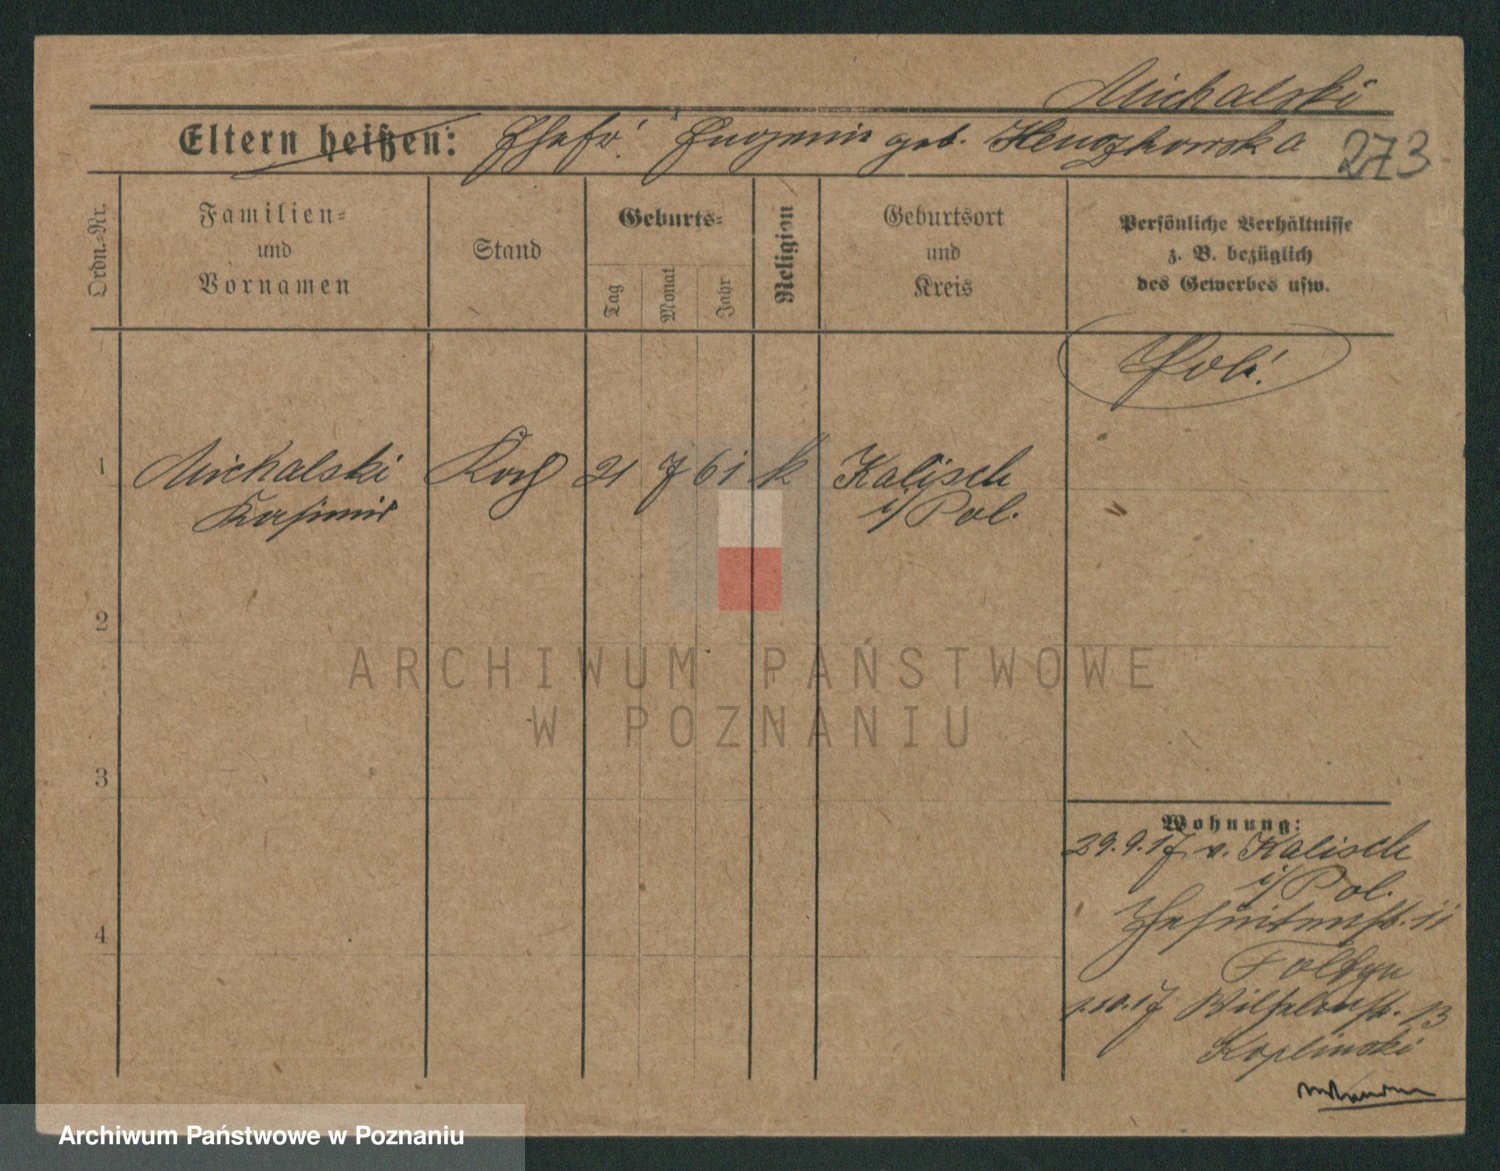 Michalski
Eltern heißen: Ehefr. Eugenie geb. Henczkowska 273
Ordn.-Nr.
Familien-
und
Vornamen
Stand
Geburts-
Tag
Monat
Jahr
Religion
Geburtsort
und
Kreis
Persönliche Verhältnisse
z. B. bezüglich
des Gewerbes usw.
1
Michalski Koch 21 7 61 k Kalisch
Kasimir i/Pol.
2
3
4
Wohnung:
29.9.17 v. Kalisch
i/Pol.
Jesuitenst. 11
1.10.17 Wilhelmst. 13
Koplinski
ARCHIWUM PAŃSTWOWE
W POZNANIU
Archiwum Państwowe w Poznaniu